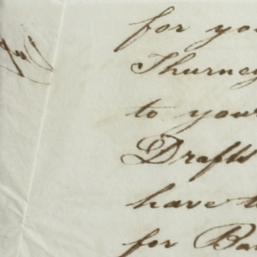 for you
Thurney
to your
Drafts
have t
for Ba